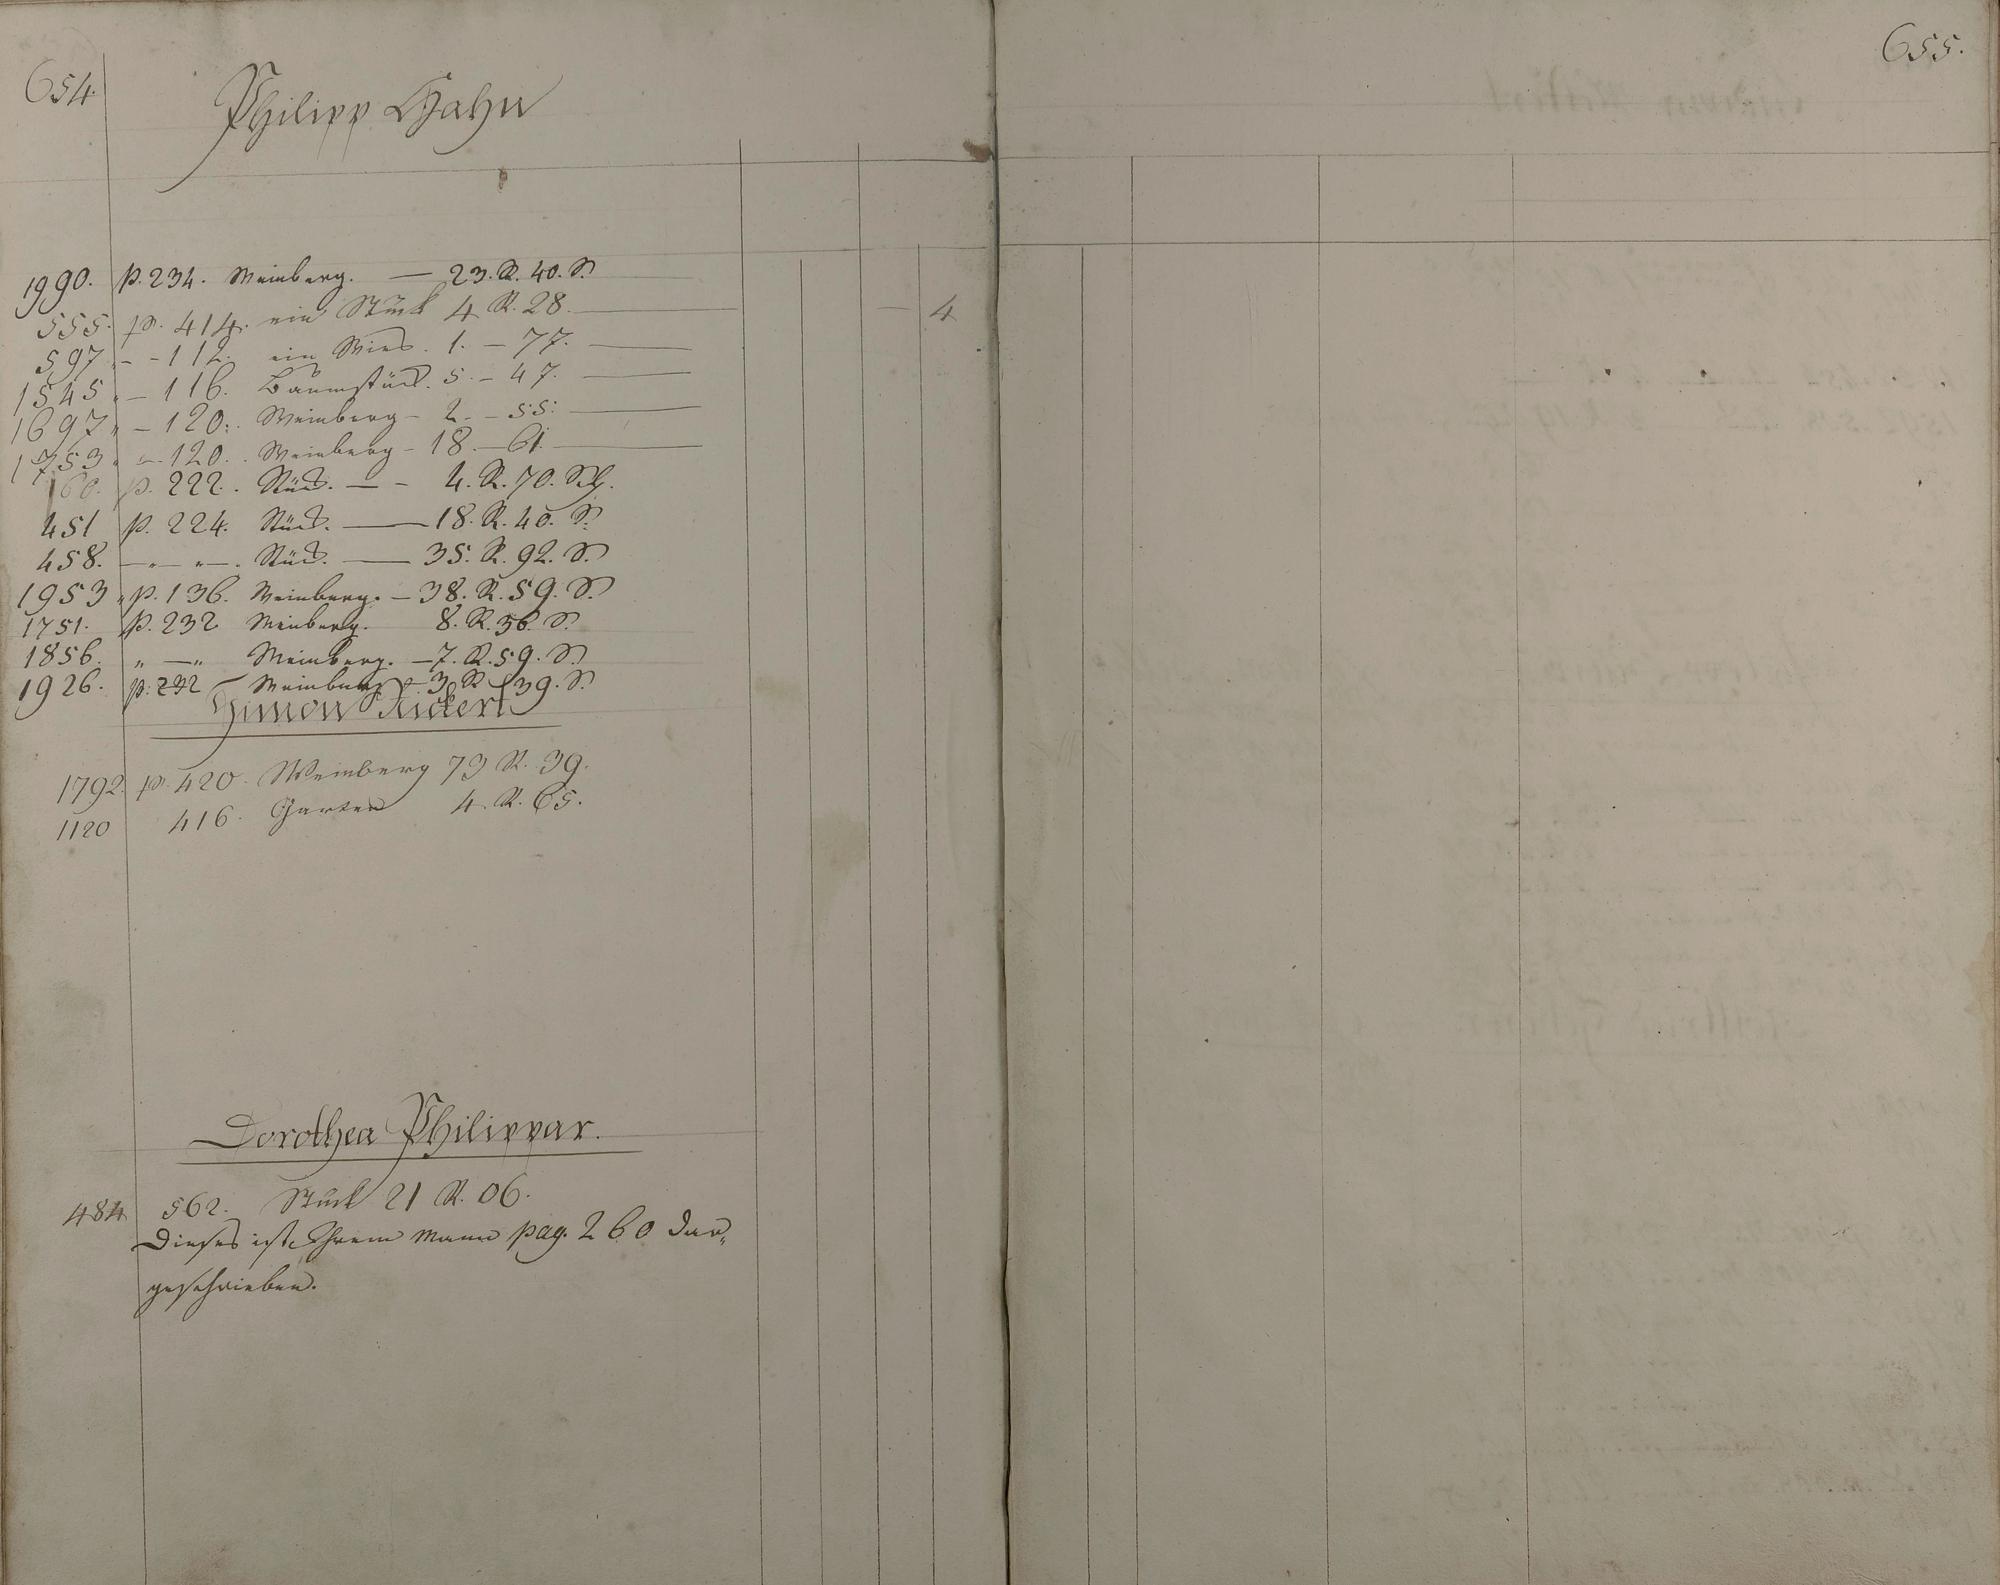 654.
655.
Philipp Hahn
1990. p. 234. Weinberg. — 23. R. 40. S.
555. p. 414. ein Stück 4 R. 28. — 4
597 " - 112. ein Wies. 1. - 77.
1545 " - 116. Baumstück. 5. - 47.
1697 " - 120. Weinberg - 2. - 55.
1753 " - 120. Weinberg - 18. - 61.
160. p. 222. Stück. — - 4. R. 70. Sch.
451 p. 224. Stück. — 18. R. 40. S.
458. — " — " —. Stück. — 35. R. 92. S.
1953 " p. 136. Weinberg. - 38. R. 59. S.
1751. p. 232 Weinberg. 8. R. 36. S.
1856. " — " Weinberg. - 7. R. 59. S.
1926. p. 232 Weinberg - 3 R. 39. S.
Simon Rickert
1792. p. 420. Weinberg 73 R. 39.
1120 416. Garten 4. R. 65.
Dorothea Philippar.
484 562. Stück 21 R. 06.
Dieses ist Ihrem Mann pag. 260 dar„
geschrieben.